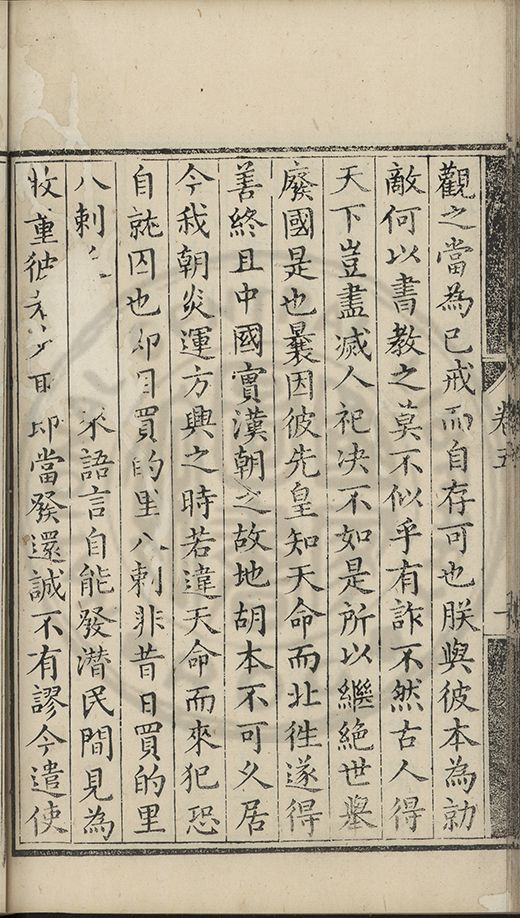 觀之當為已戒而自存可也朕與彼本為勍
敵何以書教之莫不似乎有詐不然古人得
天下豈盡滅人祀决不如是所以繼絶世舉
廢國是也曩因彼先皇知天命而北徃遂得
善終且中國實漢朝之故地胡本不可乆居
今我朝炎運方興之時若違天命而來犯恐
自就囚也却目買的里八剌非昔日買的里
八剌 語言自能發潛民間見為
牧重彼 耳即當發還誠不有謬今遣使
卷五
一